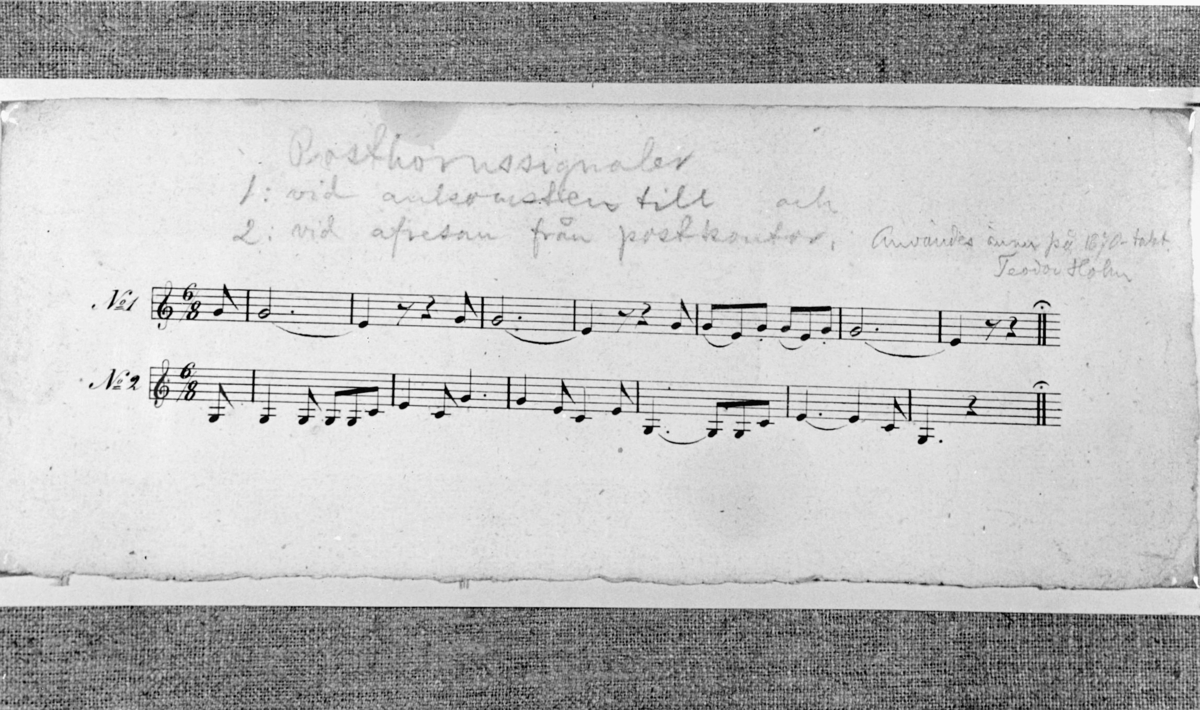 Posthornssignaler
1: vid ankomsten till och
2: vid afresan från postkontor.
Användes ännu på 1870-talet
Teodor Holm
No 1 6/8
No 2 6/8